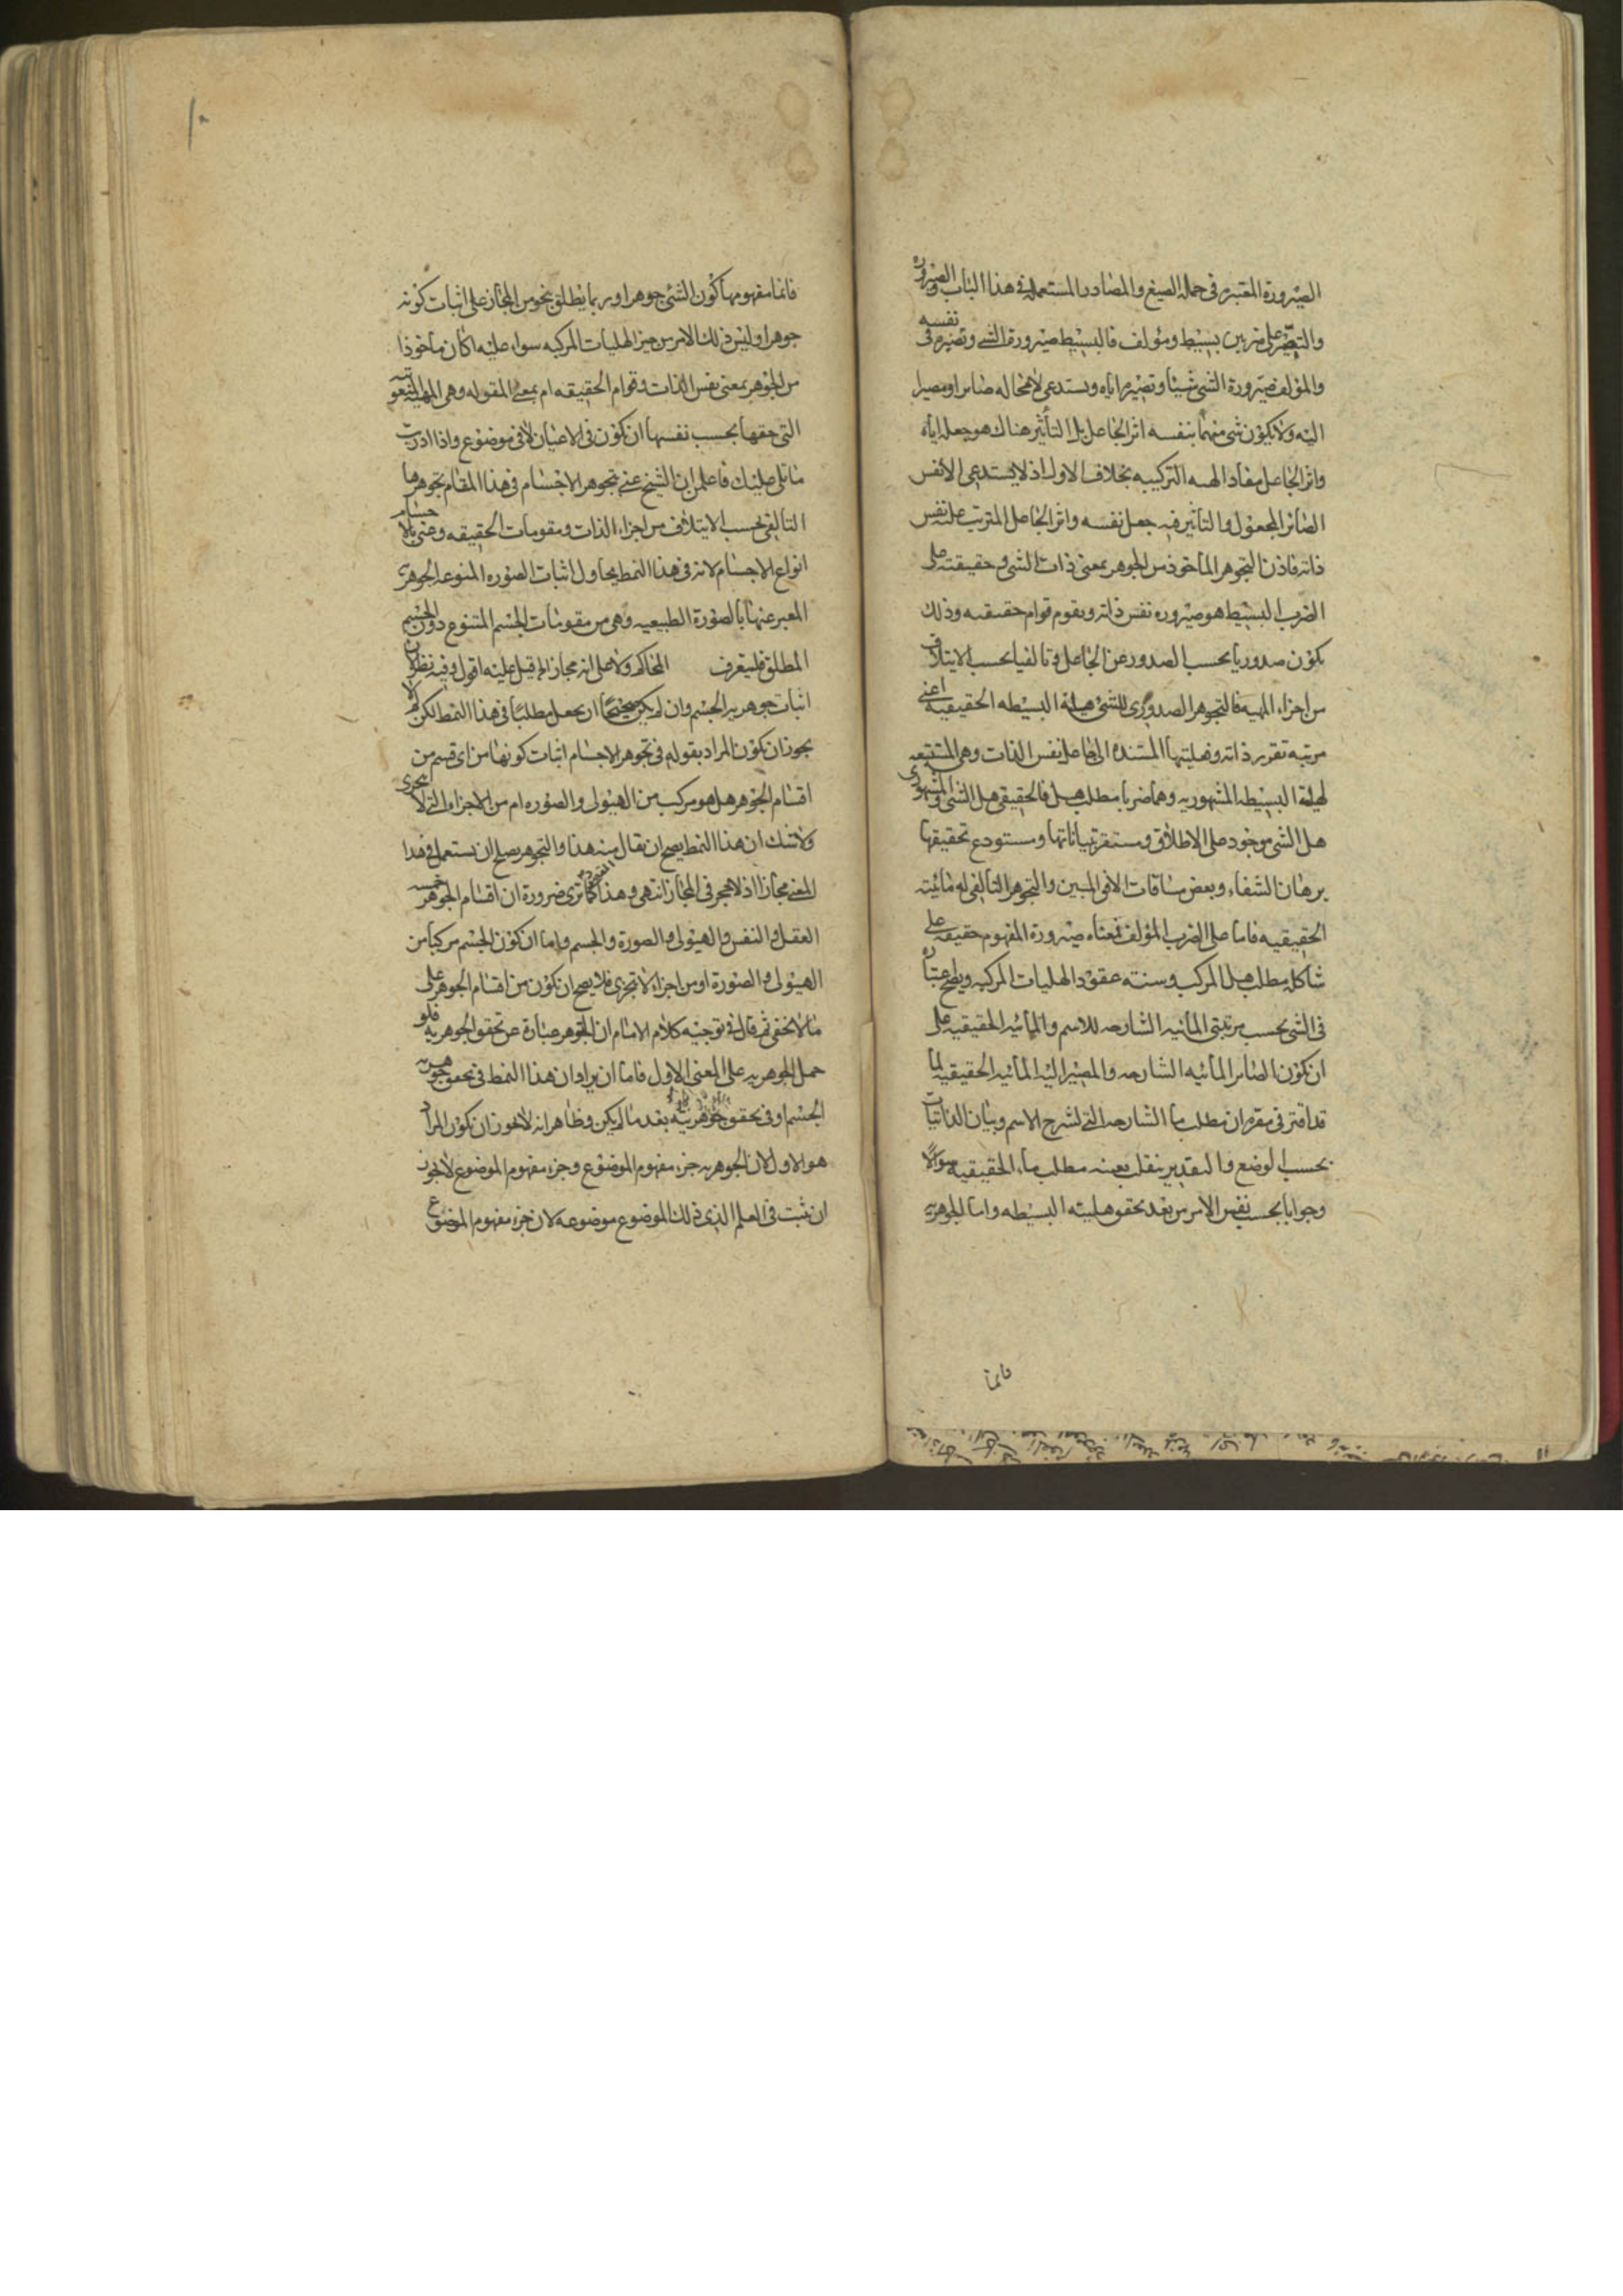 الصيرورة المعتبره فى جملة الصيغ والمصادر المستعملة فى هذا الباب والصيرورة
والتصيير على ضربين بسيط ومؤلف فالبسيط صيرورة الشئ وتصيره فى نفسه
والمؤلف صيرورة الشئ شيئا وتصيره اياه ويستدعى لا محاله صايرا ومصيرا
اليه ولا يكون شئ منهما بنفسه اثر الجاعل بل التأثير هناك هو جعله اياه
واثر الجاعل مفاد الهيئه التركيبيه بخلاف الاول اذ لا يستدعى الا نفس
الصائر المجعول والتأثير فيه جعل نفسه واثر الجاعل المترتب عليه نفس
ذاته فاذن التجوهر المأخوذ من الجوهر بمعنى ذات الشئ وحقيقته على
الضرب البسيط هو صيروره نفس ذاته وتقوم قوام حقيقته وذلك
يكون صدوريا بحسب الصدور عن الجاعل وتاليفيا بحسب الايتلاف
من اجزاء المهيه فالتجوهر الصدورى للشئ هلية البسيطه الحقيقيه اعنى
مرتبه تقرر ذاته وفعليتها المستنده الى الجاعل بنفس الذات وهى المستتبعه
لهلية البسيطه المشهوريه وهما ضربا مطلب هل فالحقيقى هل الشئ والمشهورى
هل الشئ موجود على الاطلاق ومستقر تبياناتها ومستودع تحقيقها
برهان الشفاء وبعض مساقات الافق المبين والتجوهر التاليفى له مائيته
الحقيقيه فاما على الضرب المؤلف فمعناه صيرورة المفهوم حقيقه على
شاكلة مطلب هل المركب وسنته عقود الهليات المركبه
فى الشئ بحسب مرتبتى المائيه الشارحه للاسم والمائيه الحقيقيه على
ان يكون الصائر المائيه الشارحه والمصير اليه المائيه الحقيقيه لما
قد اقتر فى مقره ان مطلب ما الشارحه التى لشرح الاسم وبيان الذاتيات
بحسب الوضع والتقدير ينقلب بعينه مطلب ماء الحقيقيه سوالا
وجوابا بحسب نفس الامر من بعد تحقق هليته البسيطه واما الجوهريه
فانما
فانما مفهومها كون الشئ جوهرا وربما يطلق بنحو من المجاز على اثبات كونه
جوهرا وليس ذلك الامر من حيز الهليات المركبه سواء عليه اكان مأخوذا
من الجوهر بمعنى نفس الذات وقوام الحقيقه ام بمعنى المقوله وهى المهيه المنعوته
التى حقها بحسب نفسها ان تكون فى الاعيان لا فى موضوع واذا دريت
ما تلى عليك فاعلمن ان الشيخ عنى بتجوهر الاجسام فى هذا المقام تجوهرها
التاليفى بحسب الايتلاف من اجزاء الذات ومقومات الحقيقه وعنى بالاجسام
انواع الاجسام لانه فى هذا النمط يحاول اثبات الصوره المنوعه الجوهريه
المعبر عنها بالصورة الطبيعيه وهى من مقومات الجسم المتنوع دون الجسم
المطلق فليتعرف المحاكم ولا على انه مجاز الم قيل عليه اقول وفيه نظر لان
اثبات جوهريه الجسم وان لم يكن صحيحا ان يجعل مطلبا فى هذا النمط لكن لم لا
يجوز ان يكون المراد بقوله فى تجوهر الاجسام اثبات كونها من اى قسم من
اقسام الجوهر هل هو مركب من الهيولى والصوره ام من الاجزاء التى لا تتجزى
ولا شك ان هذا النمط يصح ان يقال فيه هذا والتجوهر يصلح ان يستعمل فى هذا
المعنى مجازا اذ لا حجر فى المجاز انتهى وهذا كما ترى ضرورة ان اقسام الجوهر خمسه
العقل والنفس والهيولى والصورة والجسم واما ان يكون الجسم مركبا من
الهيولى والصورة او من اجزاء لا تتجزى فلا يصح ان يكون من اقسام الجوهر على
ما لا يخفى ثم قال فى توجيه كلام الامام ان التجوهر عبارة عن تحقق الجوهريه فلو
حمل الجوهريه على المعنى الاول فاما ان يراد ان هذا النمط فى تحقق جوهريه
الجسم او فى تحقق جوهريته بعد ما لم يكن وظاهر انه لا يجوز ان يكون المراد
هو الاول لان الجوهريه جزء مفهوم الموضوع وجزء مفهوم الموضوع لا يجوز
ان يثبت فى العلم الذى ذلك الموضوع موضوعه لان جزء مفهوم الموضوع